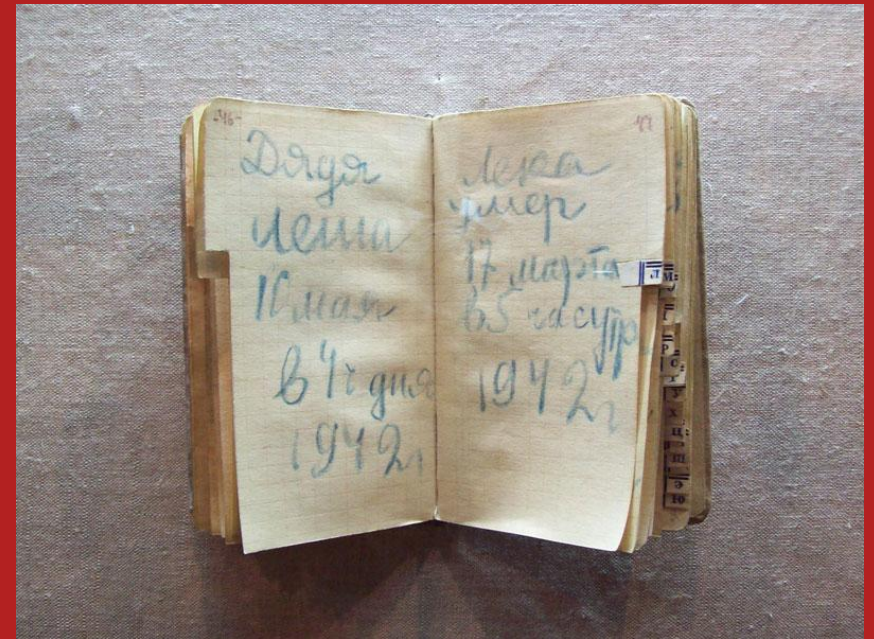 -46-
Дядя
Леша
10 мая
в 4ч дня
1942г
47
Лека
умер
17 марта
в 5 часутр
1942г
Л М
Р
С
У
Х
Ц
Щ
Э
Ю